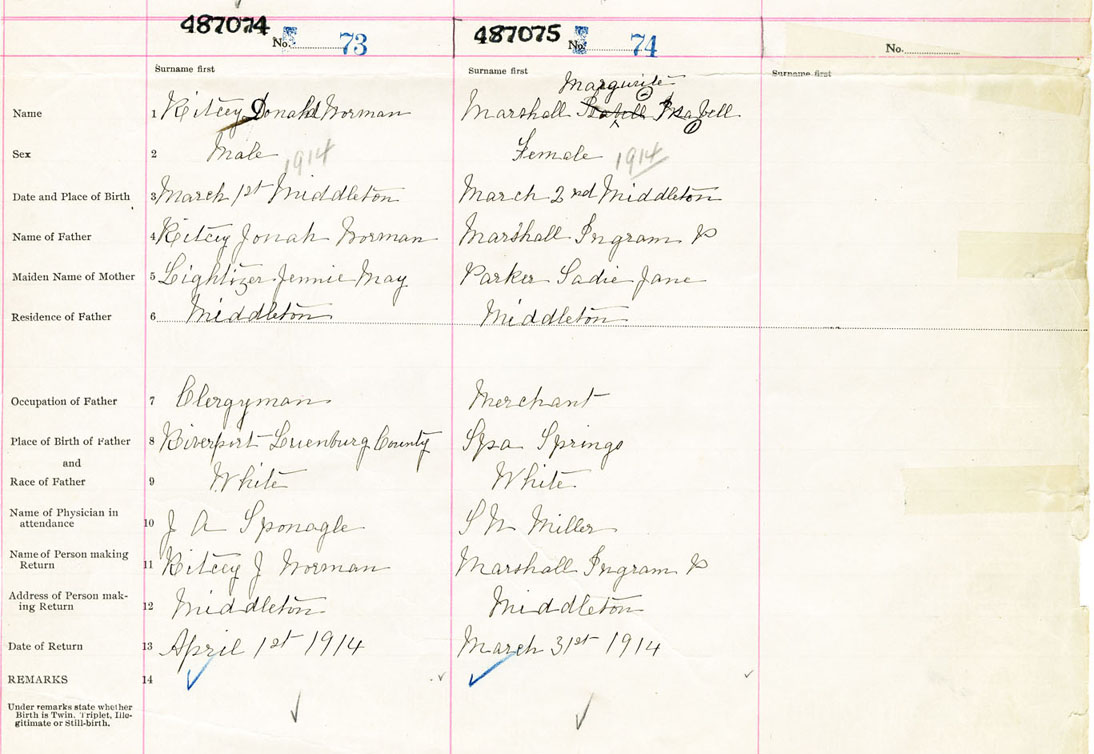 487074 No. 73 487075 No. 74 No.
Surname first Surname first Surname first
Marguirite
Name 1 Ritcey Donald Norman Marshall Isabell
Sex 2 Male 1914 Female 1914
Date and Place of Birth 3 March 1st Middleton March 2nd Middleton
Name of Father 4 Ritcey Jonah Norman Marshall Ingram P
Maiden Name of Mother 5 Lightizer Jennie May Parker Sadie Jane
Residence of Father 6 Middleton Middleton
Occupation of Father 7 Clergyman Merchant
Place of Birth of Father 8 Riverport Luenburg County Spa Springs
and
Race of Father 9 White White
Name of Physician in
attendance 10 J A Sponagle S N Miller
Name of Person making
Return 11 Ritcey J Norman Marshall Ingram P
Address of Person mak-
ing Return 12 Middleton Middleton
Date of Return 13 April 1st 1914 March 31st 1914
REMARKS 14
Under remarks state whether
Birth is Twin, Triplet, Ille-
gitimate or Still-birth.